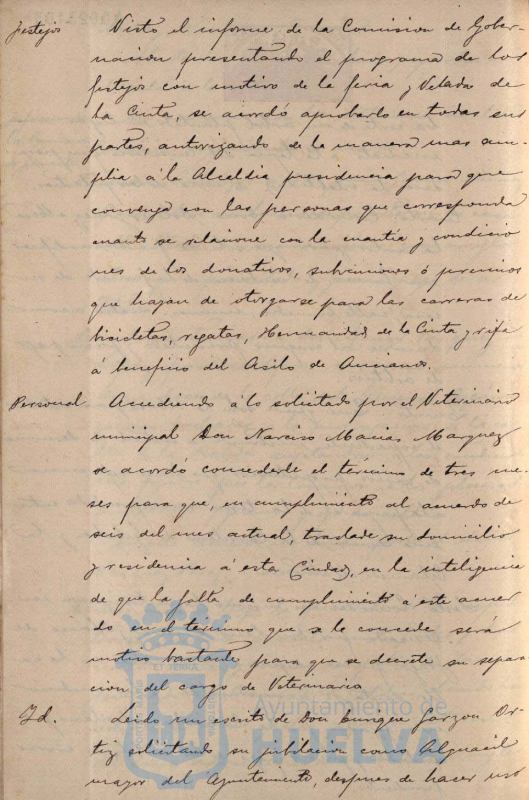 Festejos Visto el informe de la Comision de Gober-
nacion presentando el programa de los
festejos con motivo de la feria y Velada de
la Cinta, se acordó aprobarlo en todas sus
partes, autorizando de la manera mas am-
plia á la Alcaldia presidencia para que
convenga con las personas que corresponda
cuanto se relacione con la cuantia y condicio
nes de los donativos, subvenciones ó premios
que hayan de otorgarse para las carreras de
bicicletas, regatas, Hermandad de la Cinta y rifa
á beneficio del Asilo de Ancianos.
Personal Accediendo á lo solicitado por el Veterinario
municipal Don Narciso Macias Marquez
se acordó concederle el término de tres me-
ses para que, en cumplimiento al acuerdo de
seis del mes actual, traslade su domicilio
y residencia á esta Ciudad, en la inteligencia
de que la falta de cumplimiento á este acuer
do en el término que se le concede será
motivo bastante para que se decrete su sepa
racion del cargo de Veterinario
Id. Leido un escrito de Don Enrique Garzon Or-
tiz solicitando su jubilacion como Alguacil
mayor del Ayuntamiento, despues de hacer uso
Ayuntamiento de
HUELVA